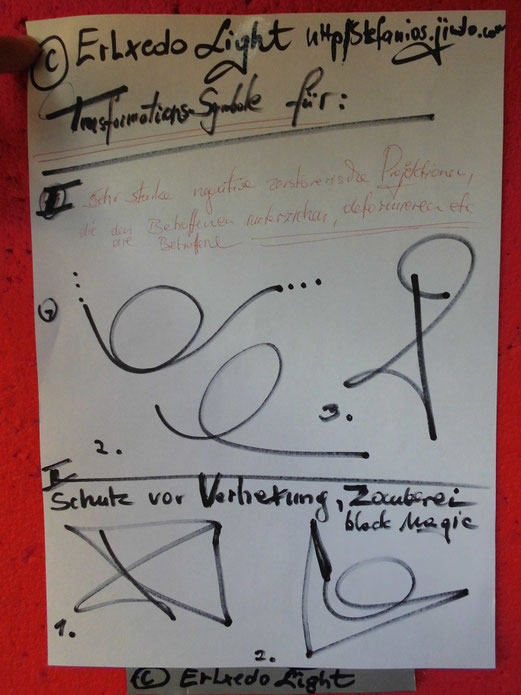 © ErLxedo Light http/Stefanios.jimdo.com
Transformations-Symbole für:
I Sehr starke negative zerstörerische Projektionen,
die den Betroffenen runterziehen, deformieren etc
die Betroffene
1.
2.
3.
II
Schutz vor Verhexung, Zauberei
black Magic
1.
2.
© ErLxedo Light